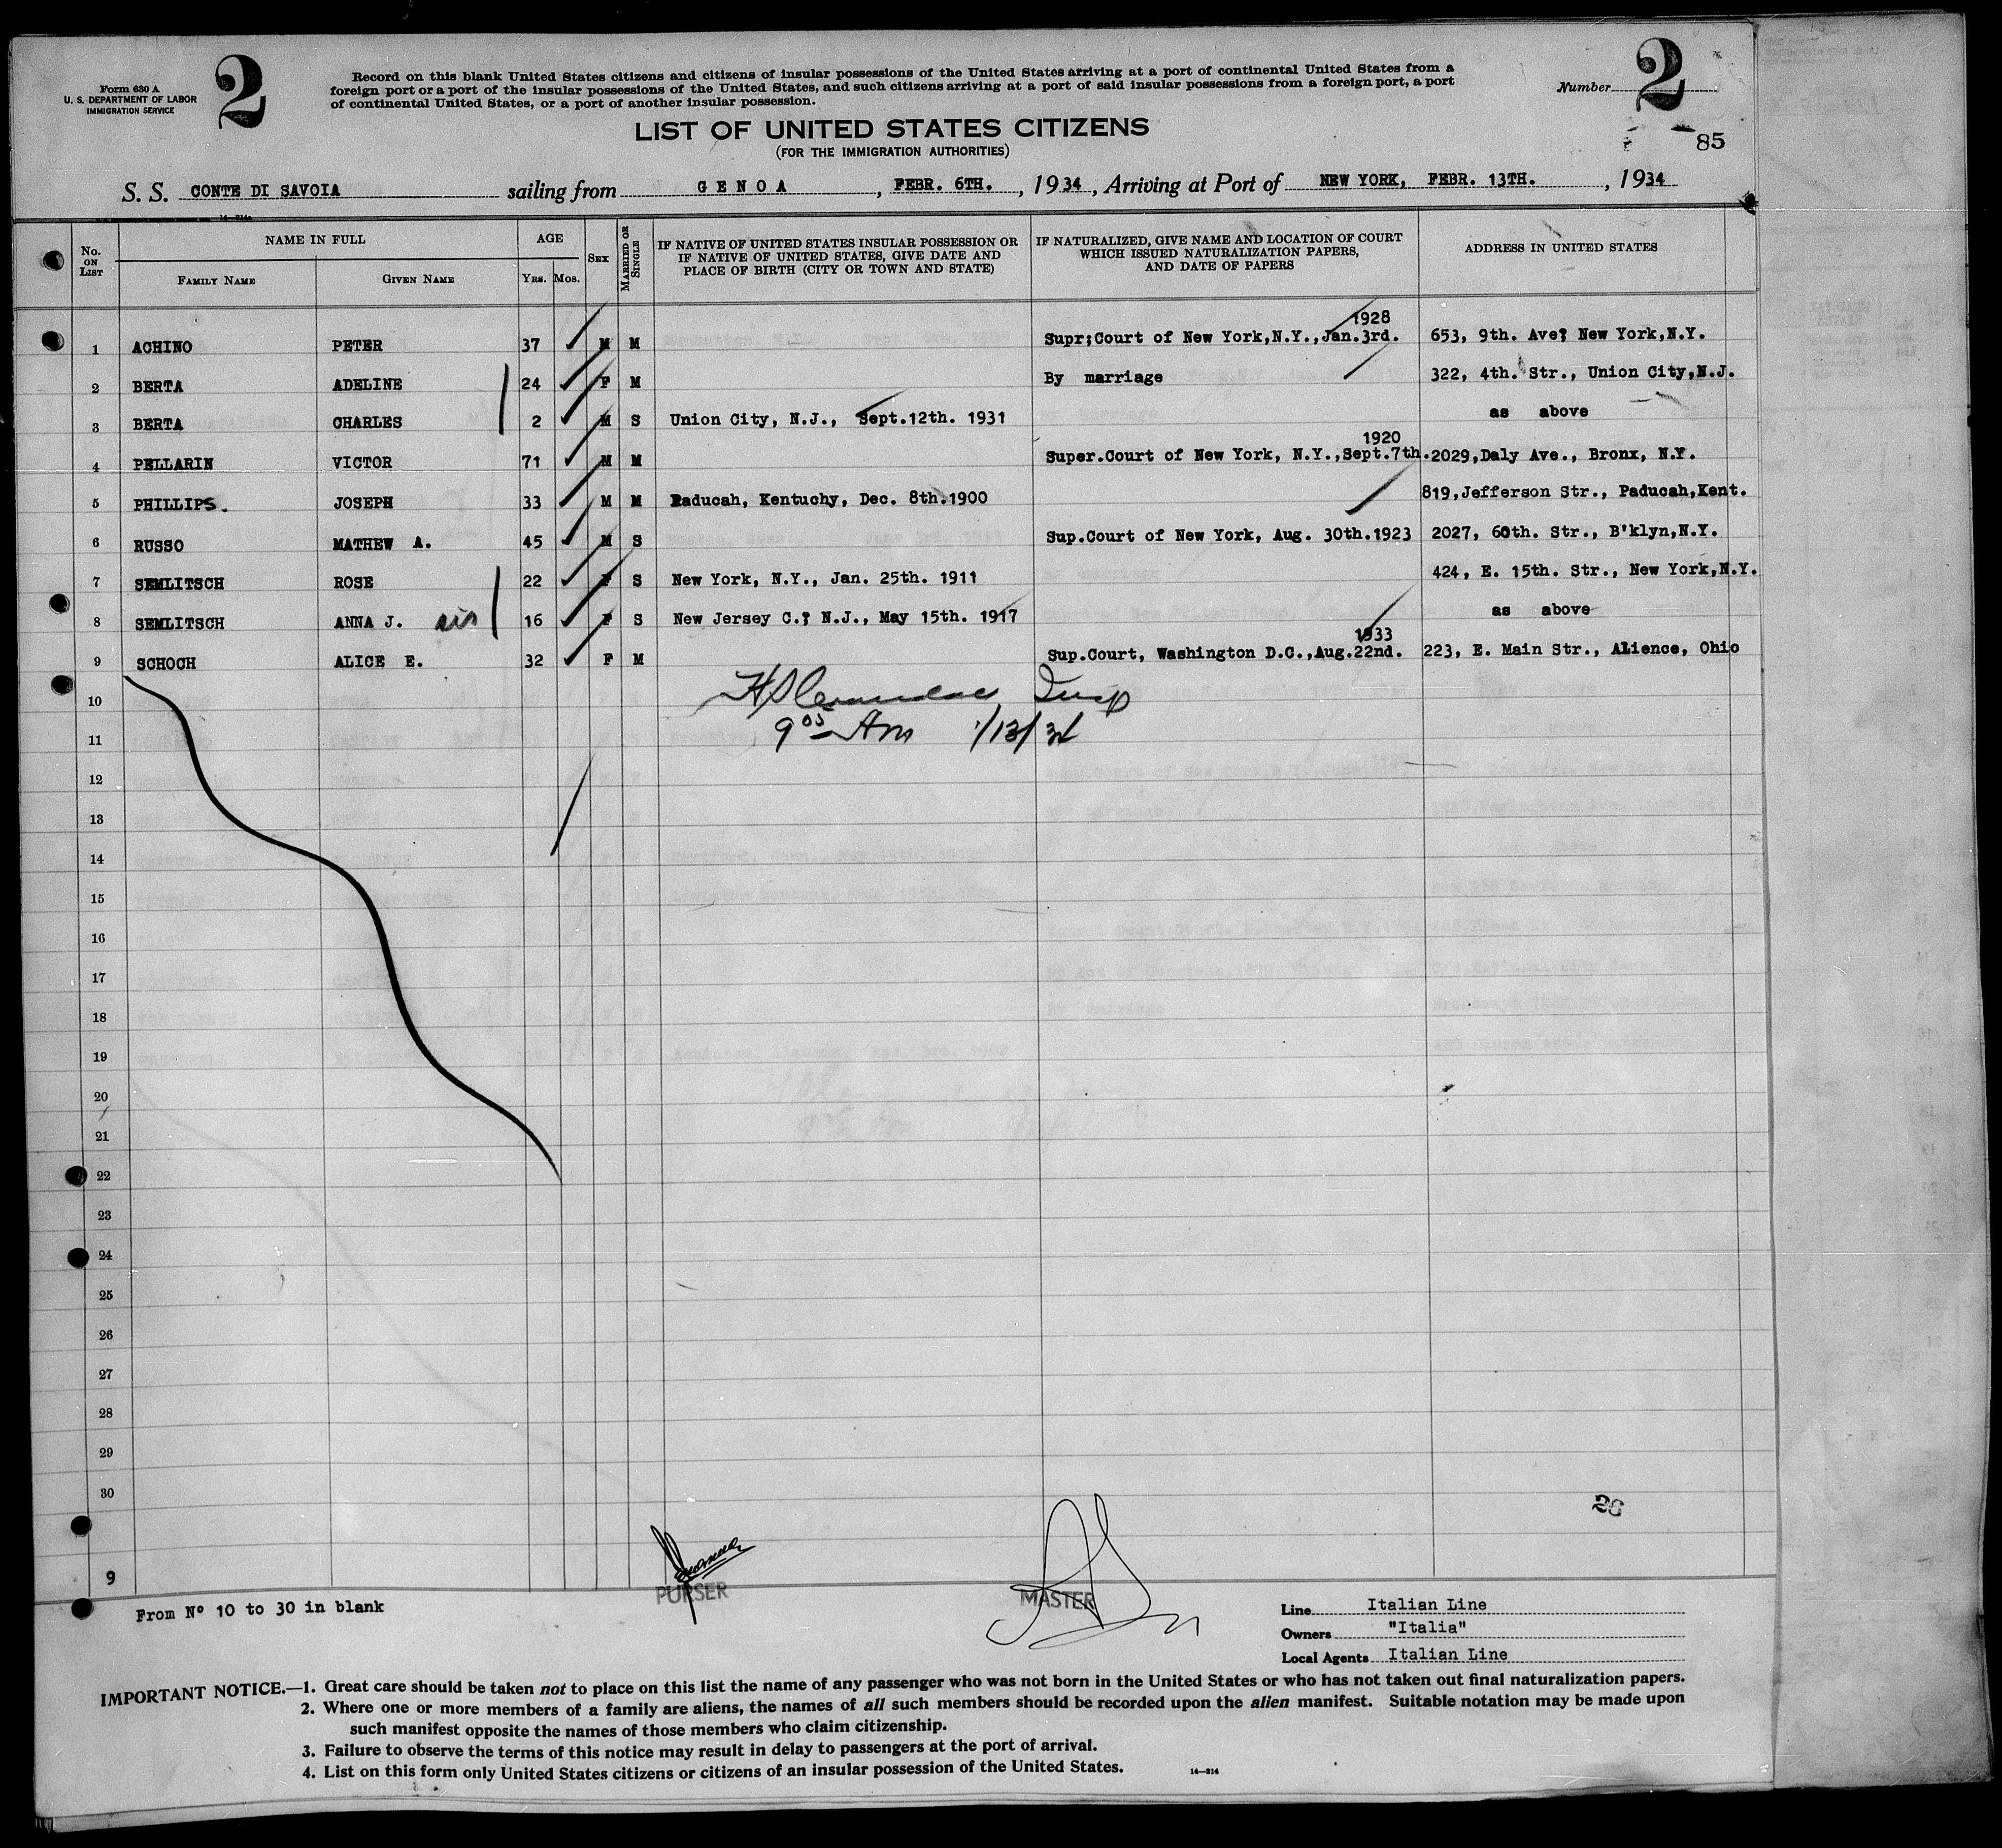 Form 630 A
U. S. DEPARTMENT OF LABOR
IMMIGRATION SERVICE
2
Record on this blank United States citizens and citizens of insular possessions of the United States arriving at a port of continental United States from a
foreign port or a port of the insular possessions of the United States, and such citizens arriving at a port of said insular possessions from a foreign port, a port
of continental United States, or a port of another insular possession.
Number 2
85
LIST OF UNITED STATES CITIZENS
(FOR THE IMMIGRATION AUTHORITIES)
S. S. CONTE DI SAVOIA sailing from GENOA, FEBR. 6TH., 1934, Arriving at Port of NEW YORK, FEBR. 13TH., 1934
No. ON LIST
NAME IN FULL
FAMILY NAME
GIVEN NAME
AGE
YRS. MOS.
SEX
MARRIED OR SINGLE
IF NATIVE OF UNITED STATES INSULAR POSSESSION OR
IF NATIVE OF UNITED STATES, GIVE DATE AND
PLACE OF BIRTH (CITY OR TOWN AND STATE)
IF NATURALIZED, GIVE NAME AND LOCATION OF COURT
WHICH ISSUED NATURALIZATION PAPERS,
AND DATE OF PAPERS
ADDRESS IN UNITED STATES
1 ACHINO PETER 37 M M Supr;Court of New York,N.Y.,Jan.3rd. 1928 653, 9th. Ave; New York,N.Y.
2 BERTA ADELINE 24 F M By marriage 322, 4th. Str., Union City,N.J.
3 BERTA CHARLES 2 M S Union City, N.J., Sept.12th. 1931 as above
4 PELLARIN VICTOR 71 M M Super.Court of New York, N.Y.,Sept.7th. 1920 2029,Daly Ave., Bronx, N.Y.
5 PHILLIPS. JOSEPH 33 M M Paducah, Kentuchy, Dec. 8th.1900 819,Jefferson Str., Paducah,Kent.
6 RUSSO MATHEW A. 45 M S Sup.Court of New York, Aug. 30th.1923 2027, 60th. Str., B'klyn,N.Y.
7 SEMLITSCH ROSE 22 F S New York, N.Y., Jan. 25th. 1911 424, E. 15th. Str., New York,N.Y.
8 SEMLITSCH ANNA J. sis 16 F S New Jersey C.; N.J., May 15th. 1917 as above
9 SCHOCH ALICE E. 32 F M Sup.Court, Washington D.C.,Aug.22nd. 1933 223, E. Main Str., Alience, Ohio
10 Insp
11 9 00 Am 1/13/34
12
13
14
15
16
17
18
19
20
21
22
23
24
25
26
27
28
29
30
26
9
PURSER
MASTER
From Nº 10 to 30 in blank
Line Italian Line
Owners "Italia"
Local Agents Italian Line
IMPORTANT NOTICE.—1. Great care should be taken not to place on this list the name of any passenger who was not born in the United States or who has not taken out final naturalization papers.
2. Where one or more members of a family are aliens, the names of all such members should be recorded upon the alien manifest. Suitable notation may be made upon
such manifest opposite the names of those members who claim citizenship.
3. Failure to observe the terms of this notice may result in delay to passengers at the port of arrival.
4. List on this form only United States citizens or citizens of an insular possession of the United States.
14—214